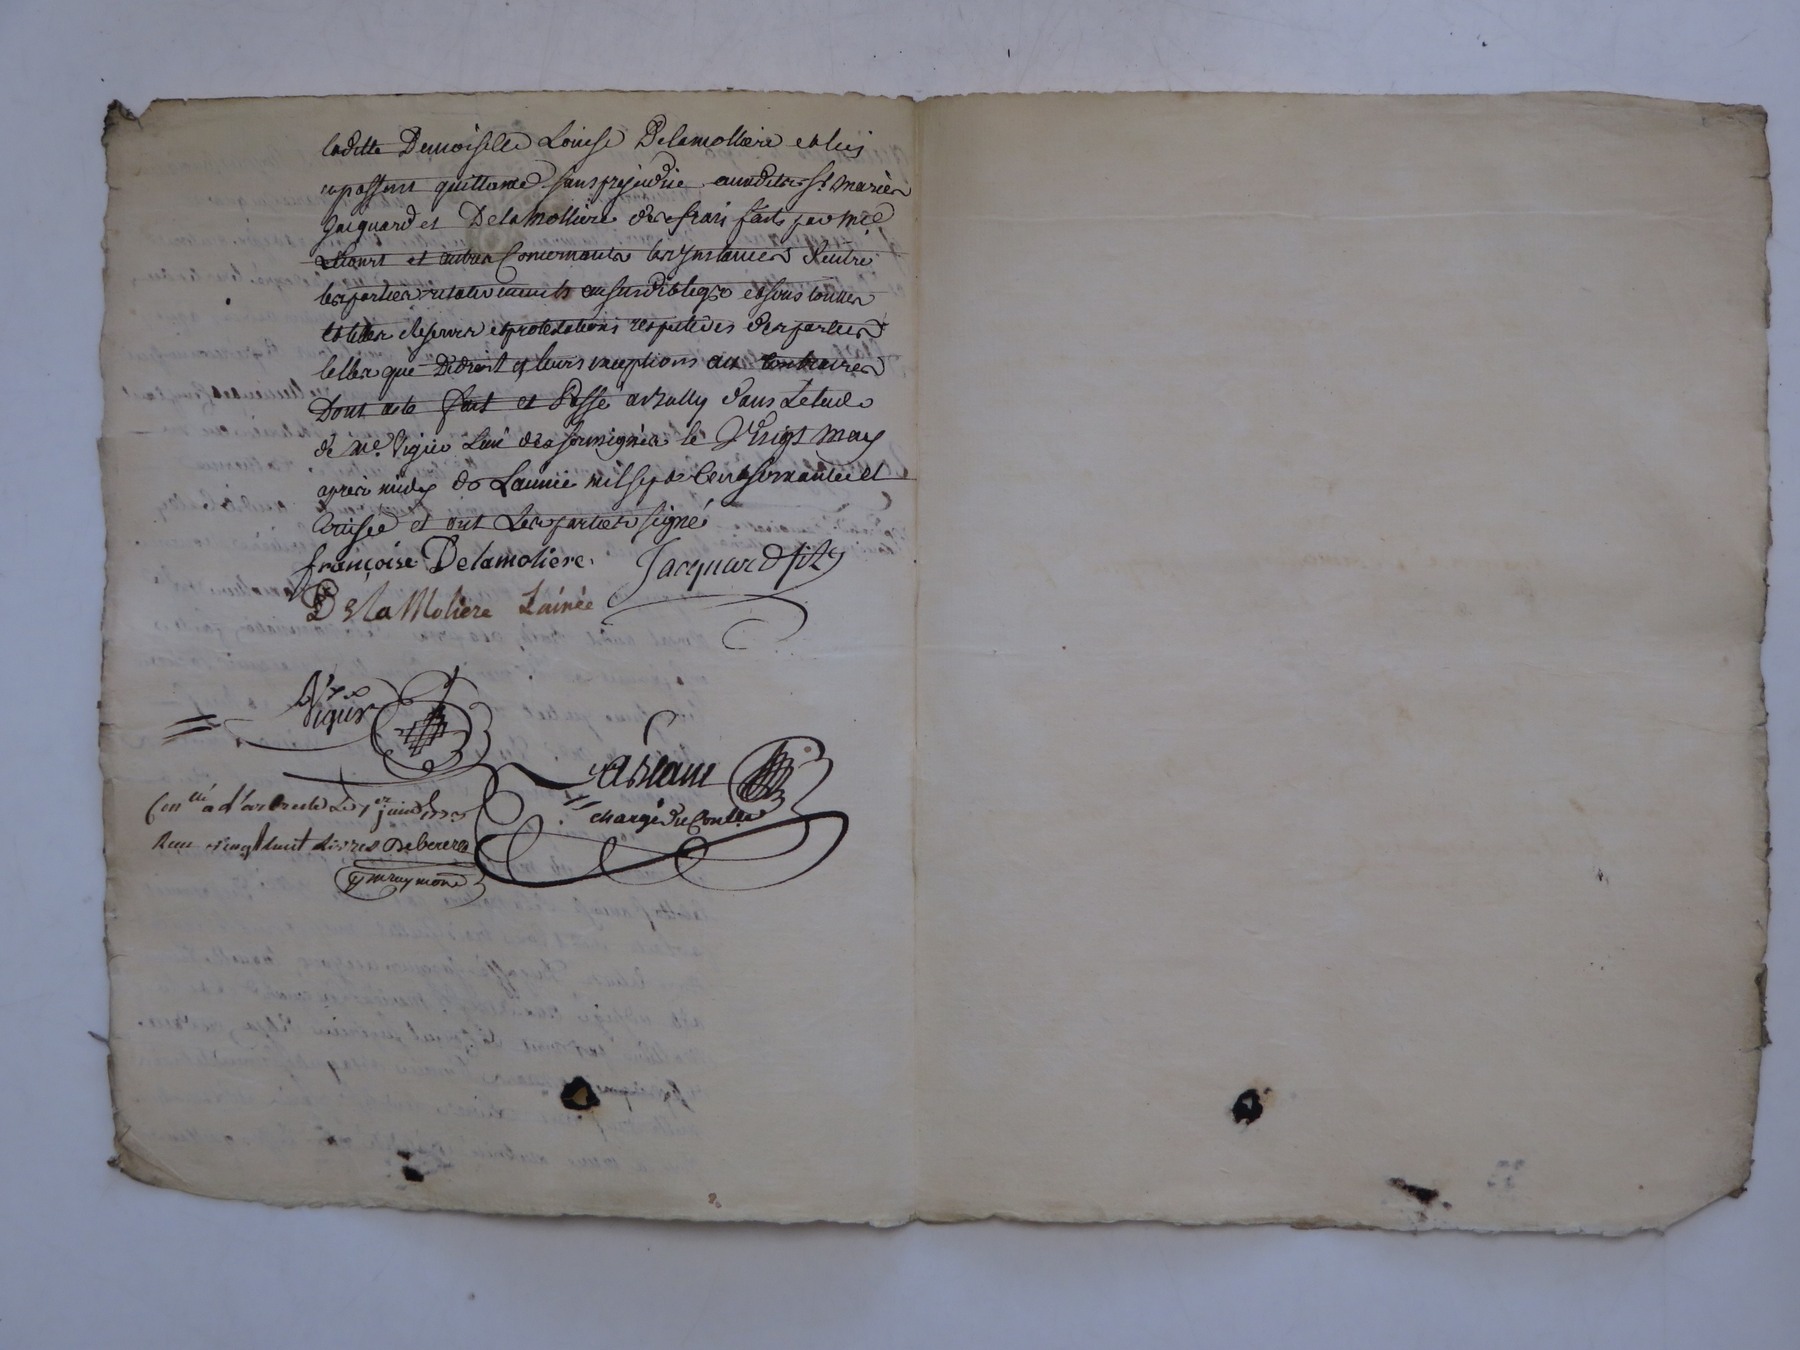 laditte Demoiselle Louise Delamolliere et luy
en passent quittance sans prejudice auxdits Sr. mariés
Jacquard et Delamolliere des frais faits par Me.
et autres Concernants les Instances d'entre
les parties relativement au susdit legs et sous touttes
et telles reserves et protestations respectives des parties
telles que De droit et leurs exceptions au Contraires
Dont acte fait et Passé a dans Letude
de Me. Vigier L'un des soussignés le Vingt may
apres midy de L'année mil sept Cent soixante et
treise et ont Les parties signé
françoise Delamoliere. Jacquard fils
De la Moliere Lainée
Vigier
chargé du Conlle
Con.llé a le 1er juin 1773
Reçu vingt huit Livres